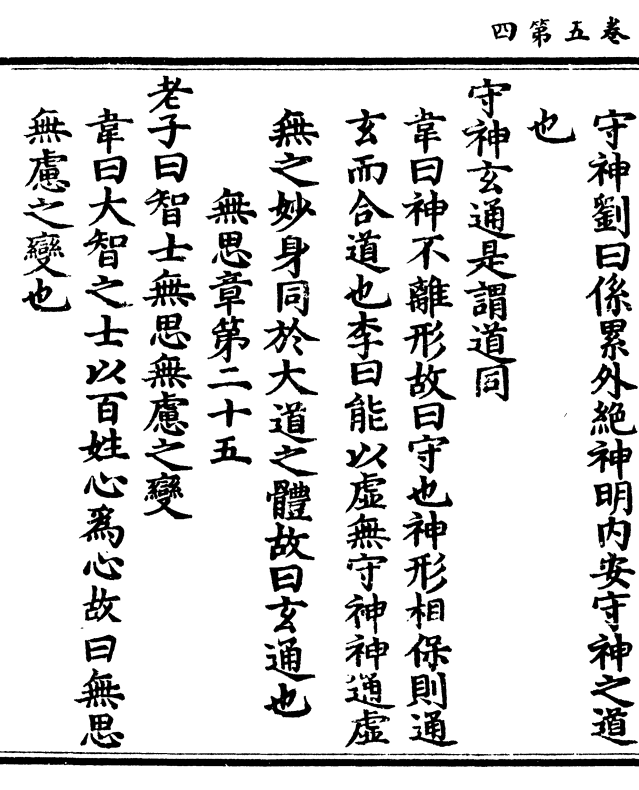 卷五第四
守神劉曰係累外絕神明内安守神之道
也
守神玄通是謂道同
韋曰神不離形故曰守也神形相保則通
玄而合道也李曰能以虛無守神神通虛
無之妙身同於大道之體故曰玄通也
無思章第二十五
老子曰智士無思無慮之變
韋曰大智之士以百姓心爲心故曰無思
無慮之變也